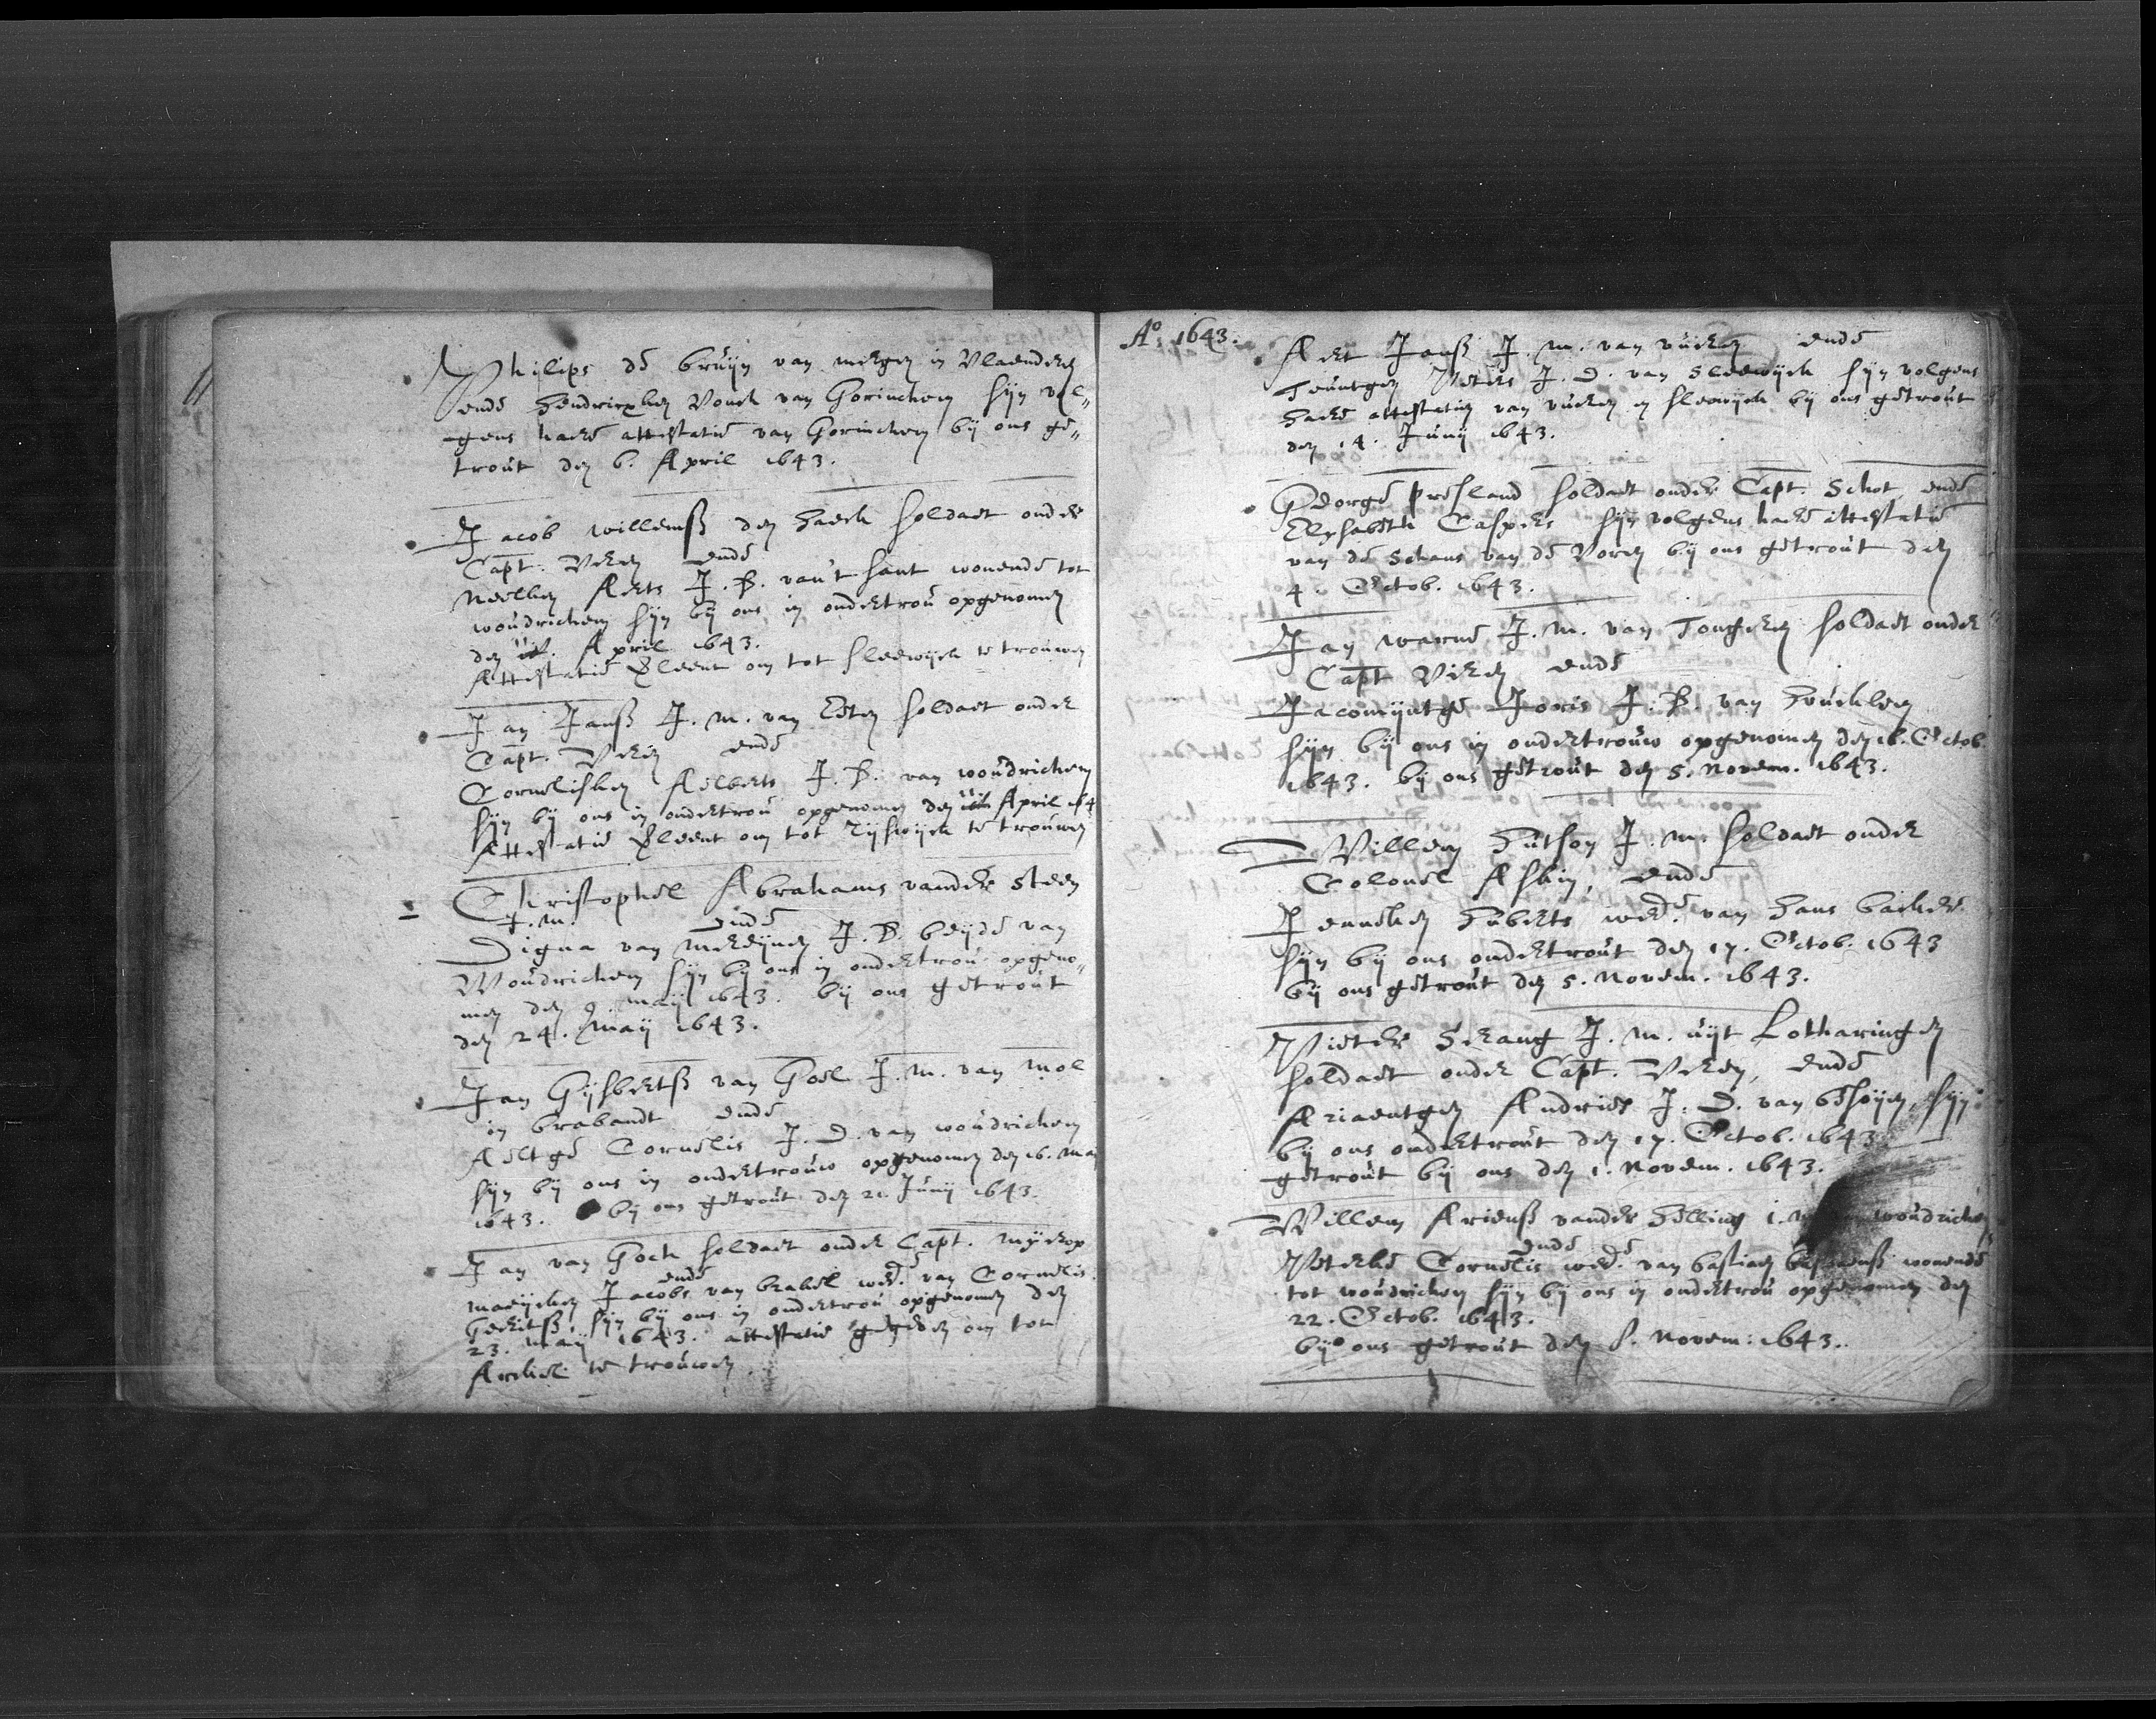 Philips de bruijn van mergen in Vlaenderen
ende Hendricxken Vonck van Gorinchem sijn vol„
gens haere attestatie van Gorinchem bij ons ge„
trout den 6. April 1643.
Jacob willemß den Haech soldaet onder
Capt. Veren ende
Neelken Aerts J. D. van't sant wonende tot
woudrichem sijn bij ons in ondertrou opgenomen
den April 1643.
Attestatie verleent om tot sleewijck te trouwen
Jan Janß J. m. van Etten soldaet onder
Capt. Veren ende
Cornelisken Aelberts J. D. van woudrichem
sijn bij ons in ondertrou opgenomen den April 164
Attestatie verleent om tot Rijswijck te trouwen
Christophel Abrahams vander Steen
J. m. ende
Digna van mereijnen J. D. beijde van
Woudrichem sijn bij ons in ondertrou opgeno„
men den 9 maij 1643. bij ons getrout
den 24. maij 1643.
Jan Gijsbertß van Goel J. m. van mol
in brabandt ende
Aeltge Cornelis J. D. van woudrichem
sijn bij ons in ondertrouw opgenomen den 16. maij
1643. bij ons getrout den 21 Junij 1643.
Jan van Goch soldaet onder Capt. mijerop
ende
maeijcken Jacobs van brakel wede. van Cornelis
Gerritß sijn bij ons in ondertrou opgenomen den
23. maij 1643. attestatie gegeven om tot
Arckel te trouwen.
Ao. 1643.
Aert Janß J. m. van vueren ende
Teuntgen Peters J. D. van Sleewijck sijn volgens
haere attestatien van vueren en sleewijck bij ons getrout
den 14. Junij 1643.
George presland soldaet onder Capt. Schot ende
Elysabeth Caspers sijn volgens haere attestatie
van de Schans van de Voren bij ons getrout den
4. Octob. 1643.
Jan warne J. m. van Tongeren soldaet onder
Capt Veren ende
Jacomijntge Joris J. D. van Heuckelen
sijn bij ons in ondertrouw opgenomen den 16. Octob.
1643. bij ons getrout den 5. Novem. 1643.
Willem Hutson J. m. soldaet onder
Colonel Askin, ende
Jenneken Huberts wede. van Hans backer
sijn bij ons ondertrout den 17. Octob. 1643
bij ons getrout den 5. Novem. 1643.
Pieter Serang J. m. uijt Lotharingen
soldaet onder Capt. Veren, ende
Ariaentgen Andries J. D. van Besoijen sijn
bij ons ondertrout den 17. Octob. 1643
getrout bij ons den 1. Novem. 1643.
Willem Arienß vander Helling woudrichem
ende
Peterke Cornelis wede. van bastiaen wonende
tot woudrichem sijn bij ons in ondertrou opgenomen den
22. Octob. 1643.
bij ons getrout den 8. Novem: 1643.